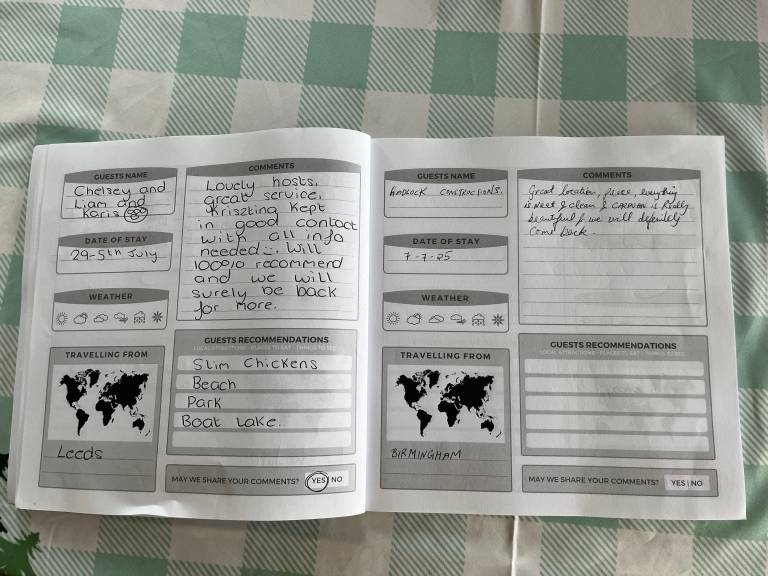 GUESTS NAME
Chelsey and
Liam and
Karis
DATE OF STAY
29-5th July
WEATHER
TRAVELLING FROM
Leeds
COMMENTS
Lovely hosts,
great service.
Krisztina kept
in good contact
with all info
needed :. Will
100% recommend
and we will
surely be back
for more.
GUESTS RECOMMENDATIONS
LOCAL ATTRACTIONS - PLACES TO EAT - THINGS TO SEE
Slim Chickens
Beach
Park
Boat Lake.
MAY WE SHARE YOUR COMMENTS? YES | NO
GUESTS NAME
CONSTRUCTIONS.
DATE OF STAY
7-7-25
WEATHER
TRAVELLING FROM
BIRMINGHAM
COMMENTS
Great location, place, everything
is neat & clean & CARAVAN is Really
beautiful & we will definitely
Come back.
GUESTS RECOMMENDATIONS
LOCAL ATTRACTIONS - PLACES TO EAT - THINGS TO SEE
MAY WE SHARE YOUR COMMENTS? YES | NO